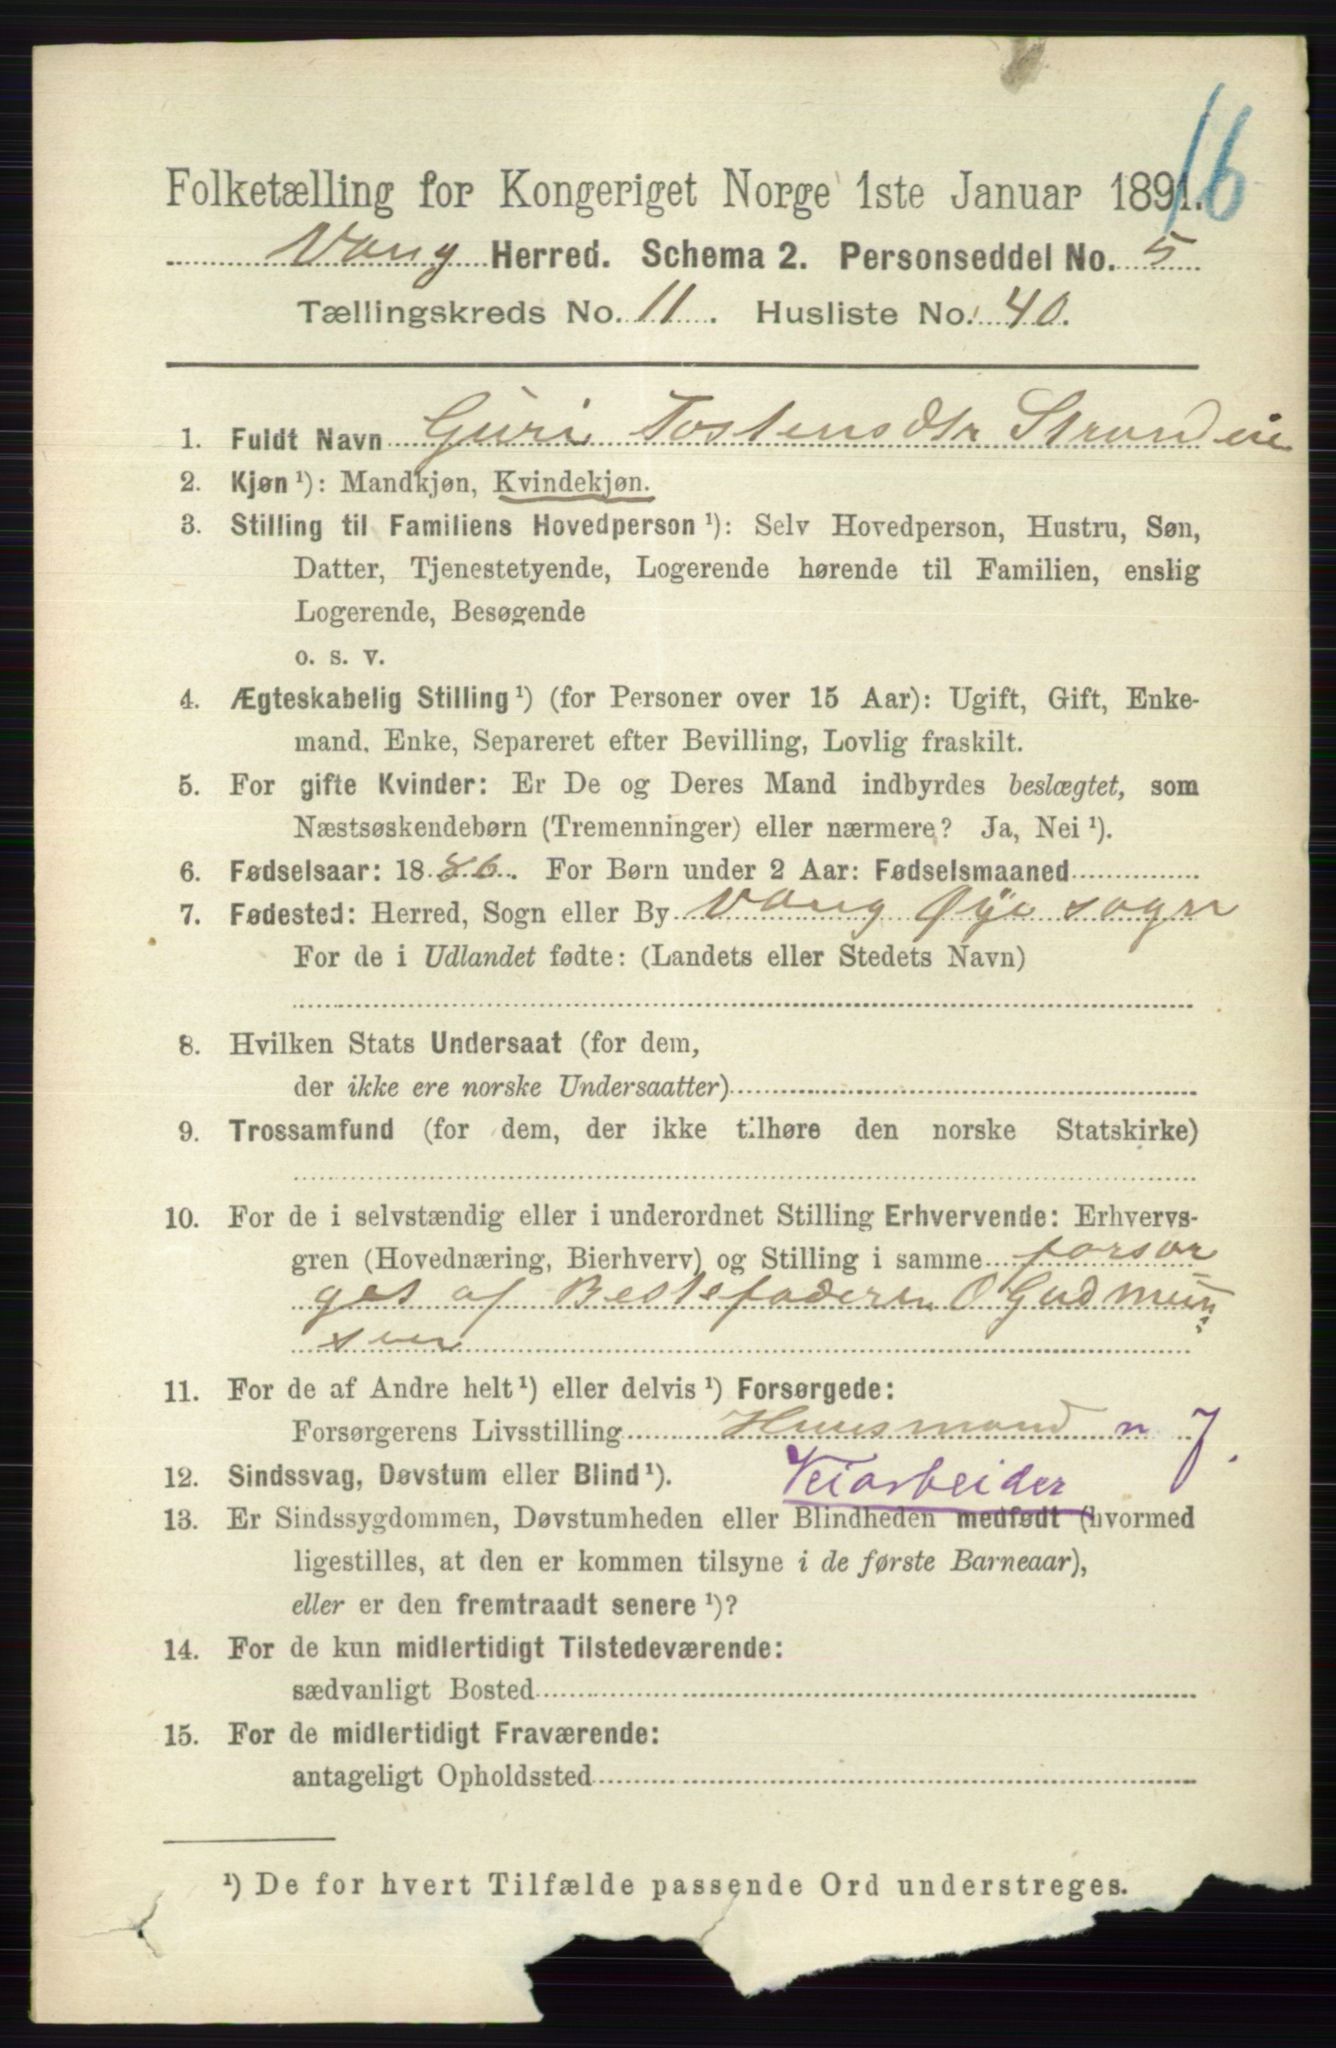 16
Folketælling for Kongeriget Norge 1ste Januar 1891.
Vang Herred. Schema 2. Personseddel No. 5
Tællingskreds No. 11. Husliste No. 40.
1. Fuldt Navn Guri Tostensdtr Strandeie
2. Kjøn ¹): Mandkjøn, Kvindekjøn.
3. Stilling til Familiens Hovedperson ¹): Selv Hovedperson, Hustru, Søn,
Datter, Tjenestetyende, Logerende hørende til Familien, enslig
Logerende, Besøgende
o. s. v.
4. Ægteskabelig Stilling ¹) (for Personer over 15 Aar): Ugift, Gift, Enke-
mand, Enke, Separeret efter Bevilling, Lovlig fraskilt.
5. For gifte Kvinder: Er De og Deres Mand indbyrdes beslægtet, som
Næstsøskendebørn (Tremenninger) eller nærmere? Ja, Nei ¹).
6. Fødselsaar: 1886. For Børn under 2 Aar: Fødselsmaaned
7. Fødested: Herred, Sogn eller By Vang Øye sogn
For de i Udlandet fødte: (Landets eller Stedets Navn)
8. Hvilken Stats Undersaat (for dem,
der ikke ere norske Undersaatter)
9. Trossamfund (for dem, der ikke tilhøre den norske Statskirke)
10. For de i selvstændig eller i underordnet Stilling Erhvervende: Erhvervs-
gren (Hovednæring, Bierhverv) og Stilling i samme forsør
ges af Bestefaderen O Gudmun
sen
11. For de af Andre helt ¹) eller delvis ¹) Forsørgede:
Forsørgerens Livsstilling Huusmand m J.
12. Sindssvag, Døvstum eller Blind ¹). Veiarbeider
13. Er Sindssygdommen, Døvstumheden eller Blindheden medfødt (hvormed
ligestilles, at den er kommen tilsyne i de første Barneaar),
eller er den fremtraadt senere ¹)?
14. For de kun midlertidigt Tilstedeværende:
sædvanligt Bosted
15. For de midlertidigt Fraværende:
antageligt Opholdssted
¹) De for hvert Tilfælde passende Ord understreges.